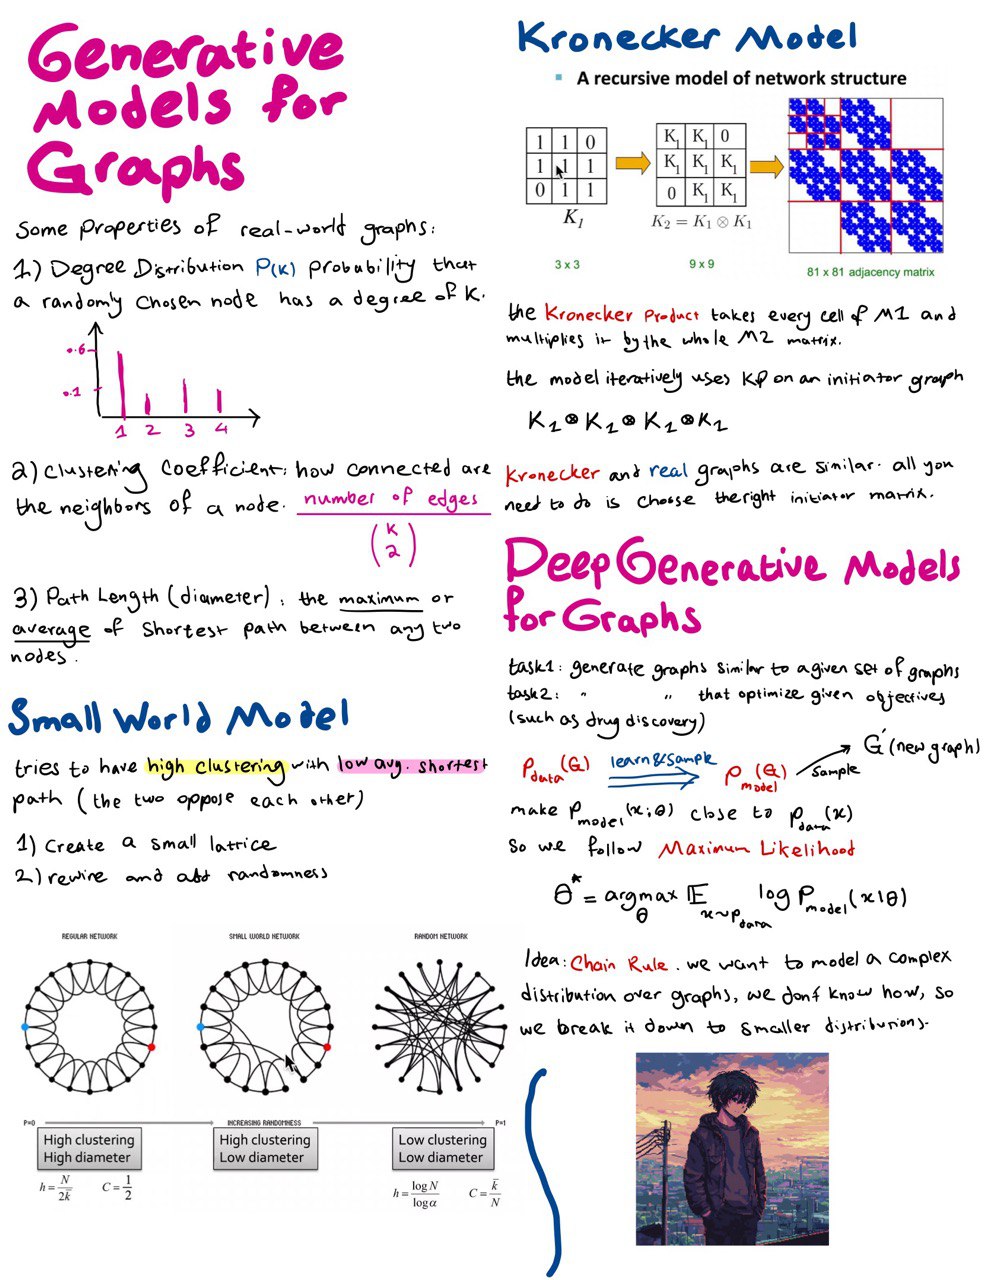 Generative
Models for
Graphs
Some Properties of real-world graphs:
1) Degree Distribution P(K) probability that
a randomly chosen node has a degree of K.
0.6
0.1
1 2 3 4
2) Clustering Coefficient: how connected are
the neighbors of a node. number of edges
(K 2)
3) Path Length (diameter): the maximum or
average of shortest path between any two
nodes.
Small World Model
tries to have high clustering with low avg. shortest
path (the two oppose each other)
1) Create a small lattice
2) rewire and add randomness
REGULAR NETWORK SMALL WORLD NETWORK RANDOM NETWORK
P=0 INCREASING RANDOMNESS P=1
High clustering
High diameter
h = N/2k̄ C = 1/2
High clustering
Low diameter
Low clustering
Low diameter
h = log N/log α C = k̄/N
Kronecker Model
A recursive model of network structure
1 1 0
1 1 1
0 1 1
K₁
3 x 3
K₁ K₁ 0
K₁ K₁ K₁
0 K₁ K₁
K₂ = K₁ ⊗ K₁
9 x 9
81 x 81 adjacency matrix
the Kronecker Product takes every cell of M1 and
multiplies it by the whole M2 matrix.
the model iteratively uses KP on an initiator graph
K₁ ⊗ K₁ ⊗ K₁ ⊗ K₁
Kronecker and real graphs are similar. all you
need to do is choose the right initiator matrix.
Deep Generative Models
for Graphs
task1: generate graphs similar to a given set of graphs
task2: " " that optimize given objectives
(such as drug discovery)
P data (G) learn & sample P model (G) sample G' (new graph)
make P model (x;θ) close to P data (x)
So we follow Maximum Likelihood
θ* = argmax θ 𝔼 x~P data log P model (x|θ)
Idea: Chain Rule. we want to model a complex
distribution over graphs, we don't know how, so
we break it down to smaller distributions.